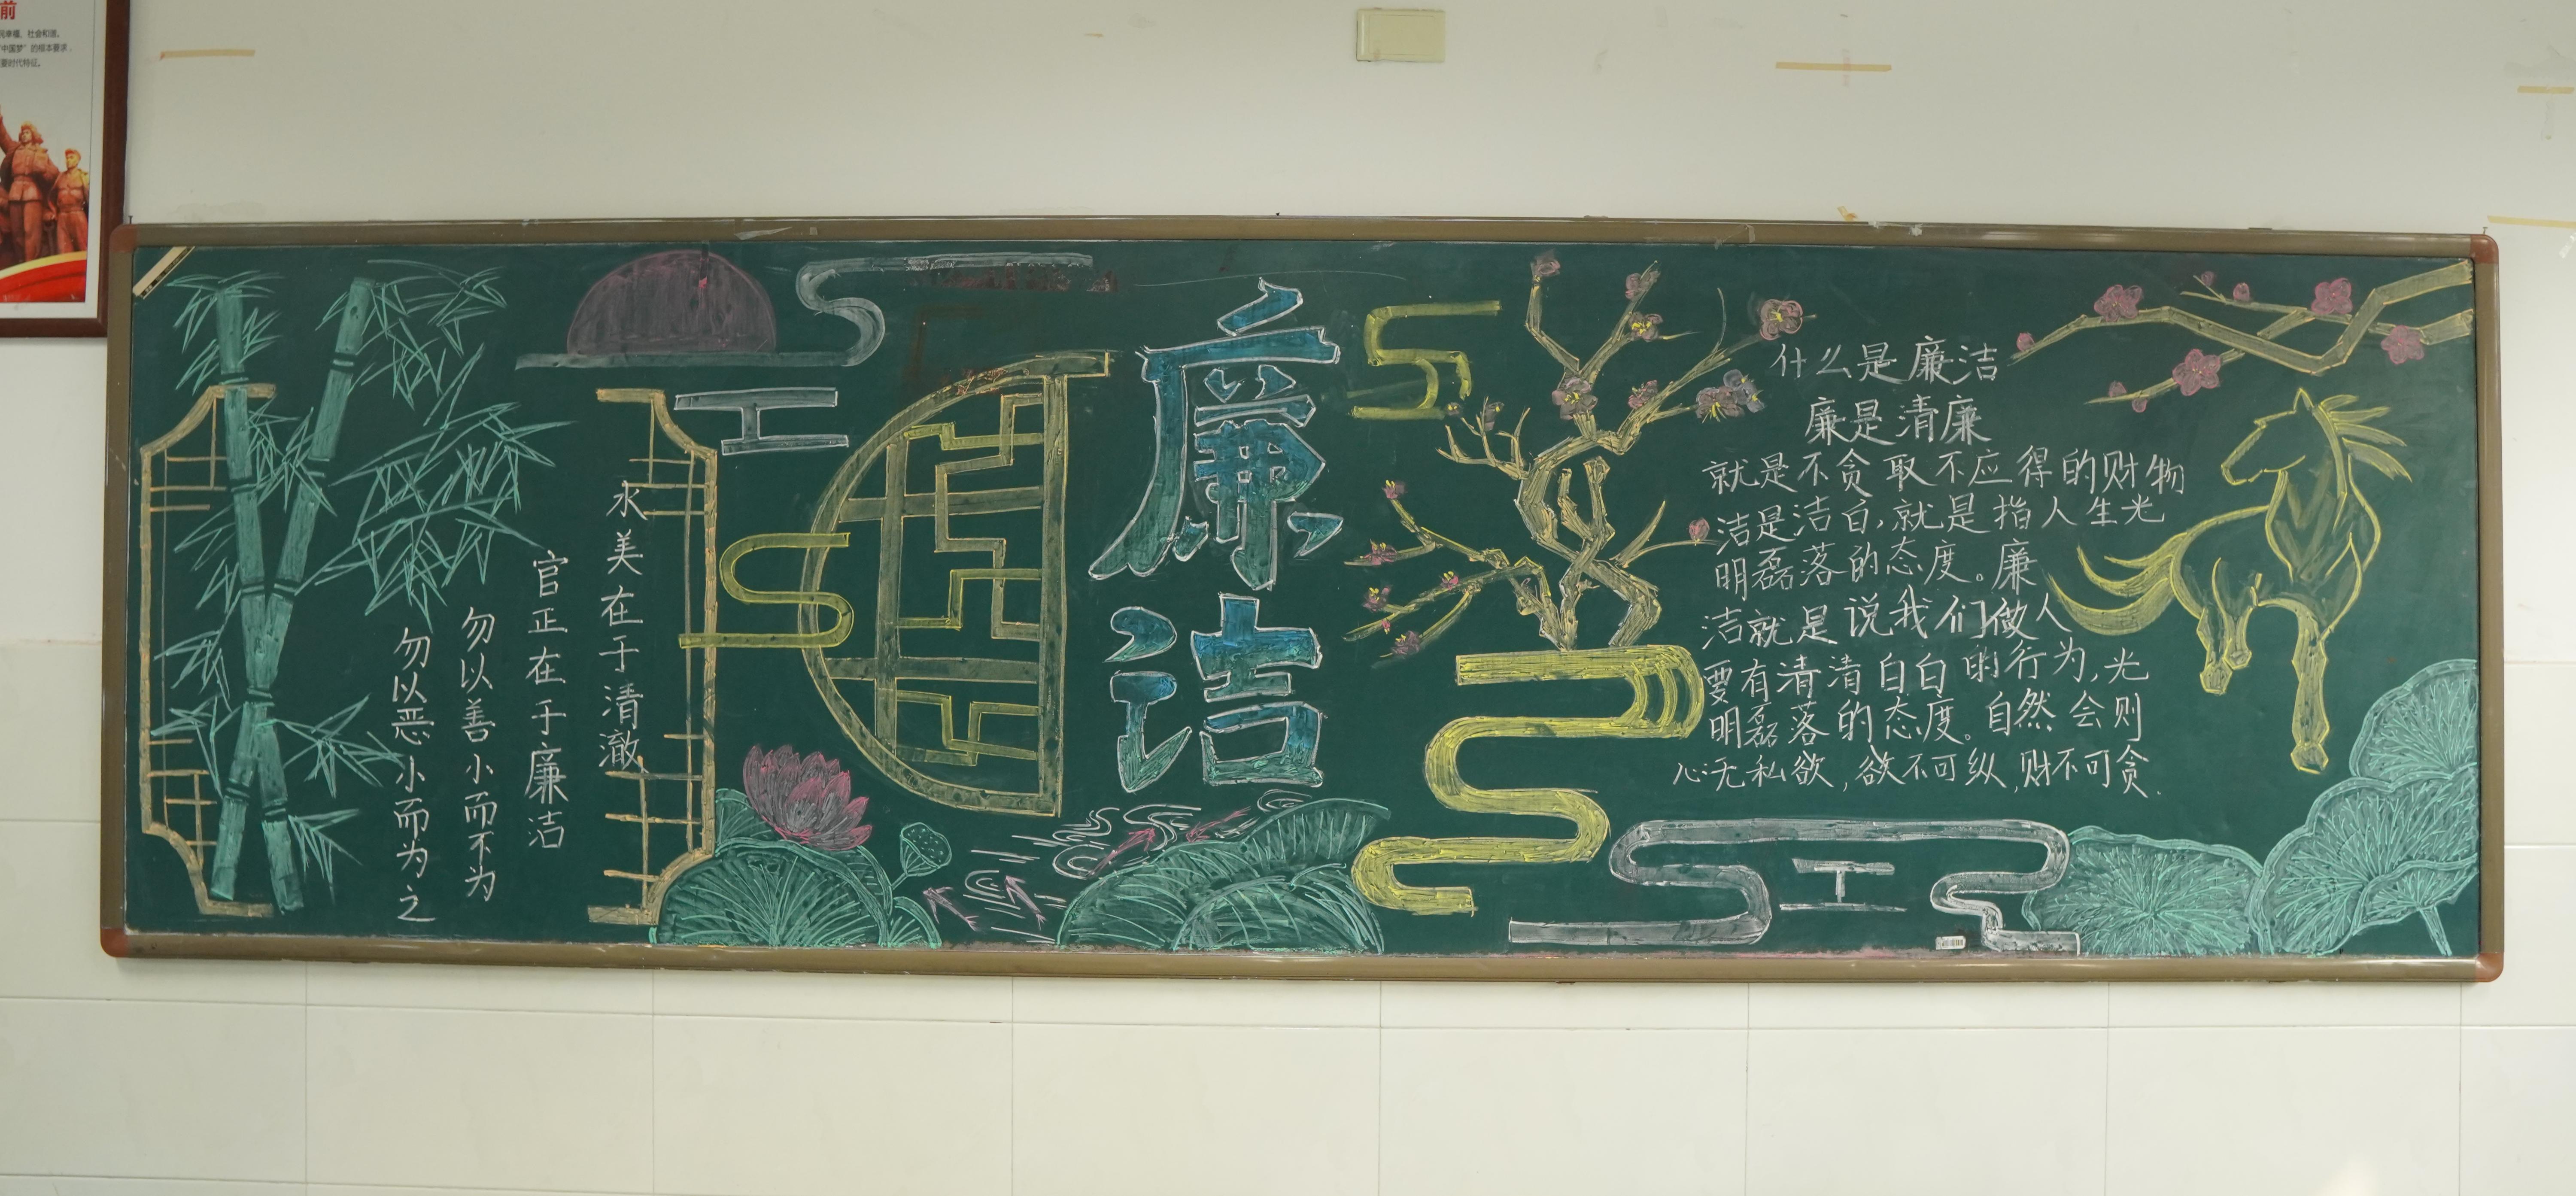 前
社会和谐。
"中国梦"的根本要求，
要时代特征。
水美在于清澈
官正在于廉洁
勿以善小而不为
勿以恶小而为之
廉洁
什么是廉洁
廉是清廉
就是不贪取不应得的财物
洁是洁白，就是指人生光
明磊落的态度。廉
洁就是说我们做人
要有清清白白的行为，光
明磊落的态度。自然会则
心无私欲，欲不可纵，财不可贪.